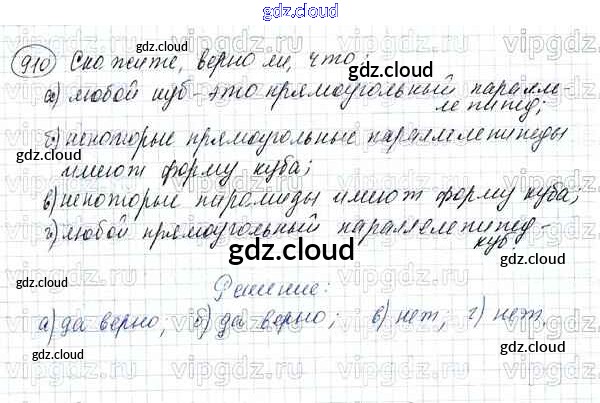 gdz.cloud
910 Скажите, верно ли, что:
gdz.cloud
gdz.cloud
а) любой куб - это прямоугольный паралле-
лепипед;
б) некоторые прямоугольные параллелепипеды
gdz.cloud
gdz.cloud
имеют форму куба;
в) некоторые пирамиды имеют форму куба;
г) любой прямоугольный параллелепипед -
куб
gdz.cloud
Решение:
а) да верно, б) да верно; в) нет; г) нет.
gdz.cloud
gdz.cloud
gdz.cloud